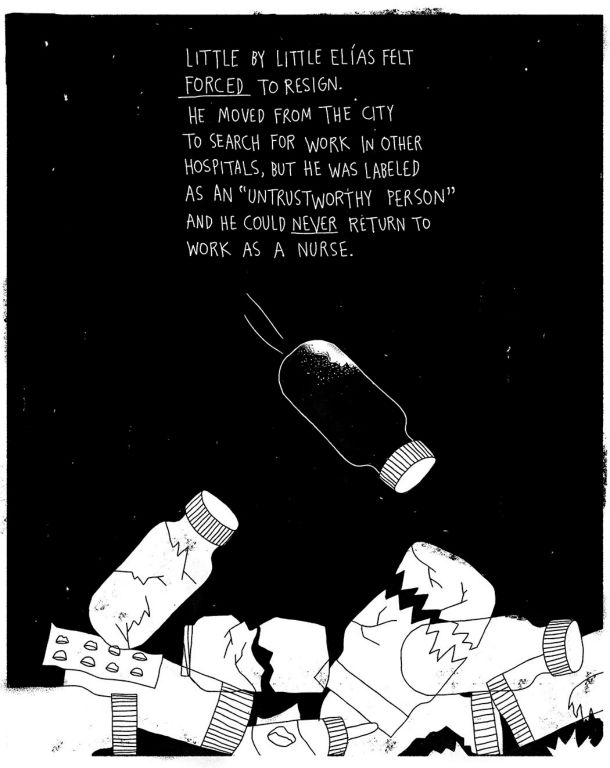 LITTLE BY LITTLE ELÍAS FELT
FORCED TO RESIGN.
HE MOVED FROM THE CITY
TO SEARCH FOR WORK IN OTHER
HOSPITALS, BUT HE WAS LABELED
AS AN "UNTRUSTWORTHY PERSON"
AND HE COULD NEVER RETURN TO
WORK AS A NURSE.